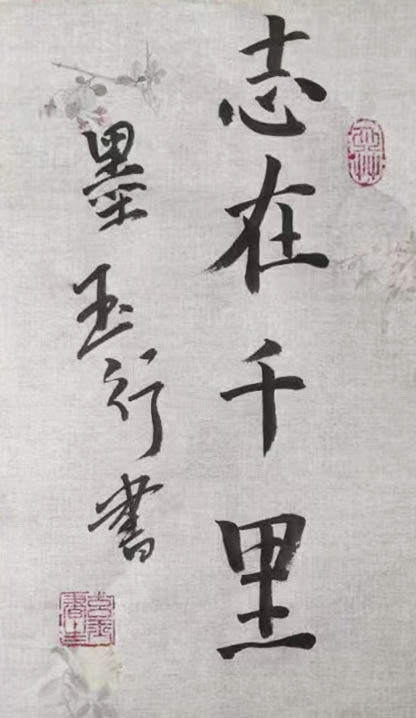 志在千里
墨玉行書